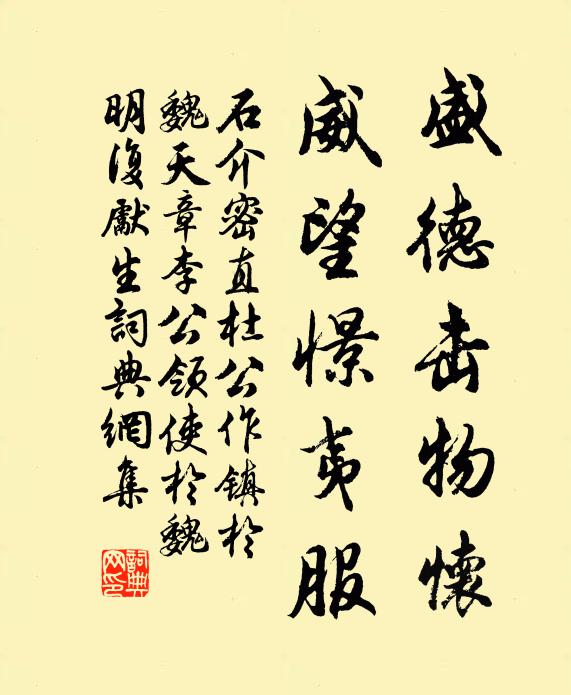 盛德击物懷
威望憬夷服
石介密直杜公作鎮於
魏天章李公領使於魏
明復獻生詞典網集
詞典网印